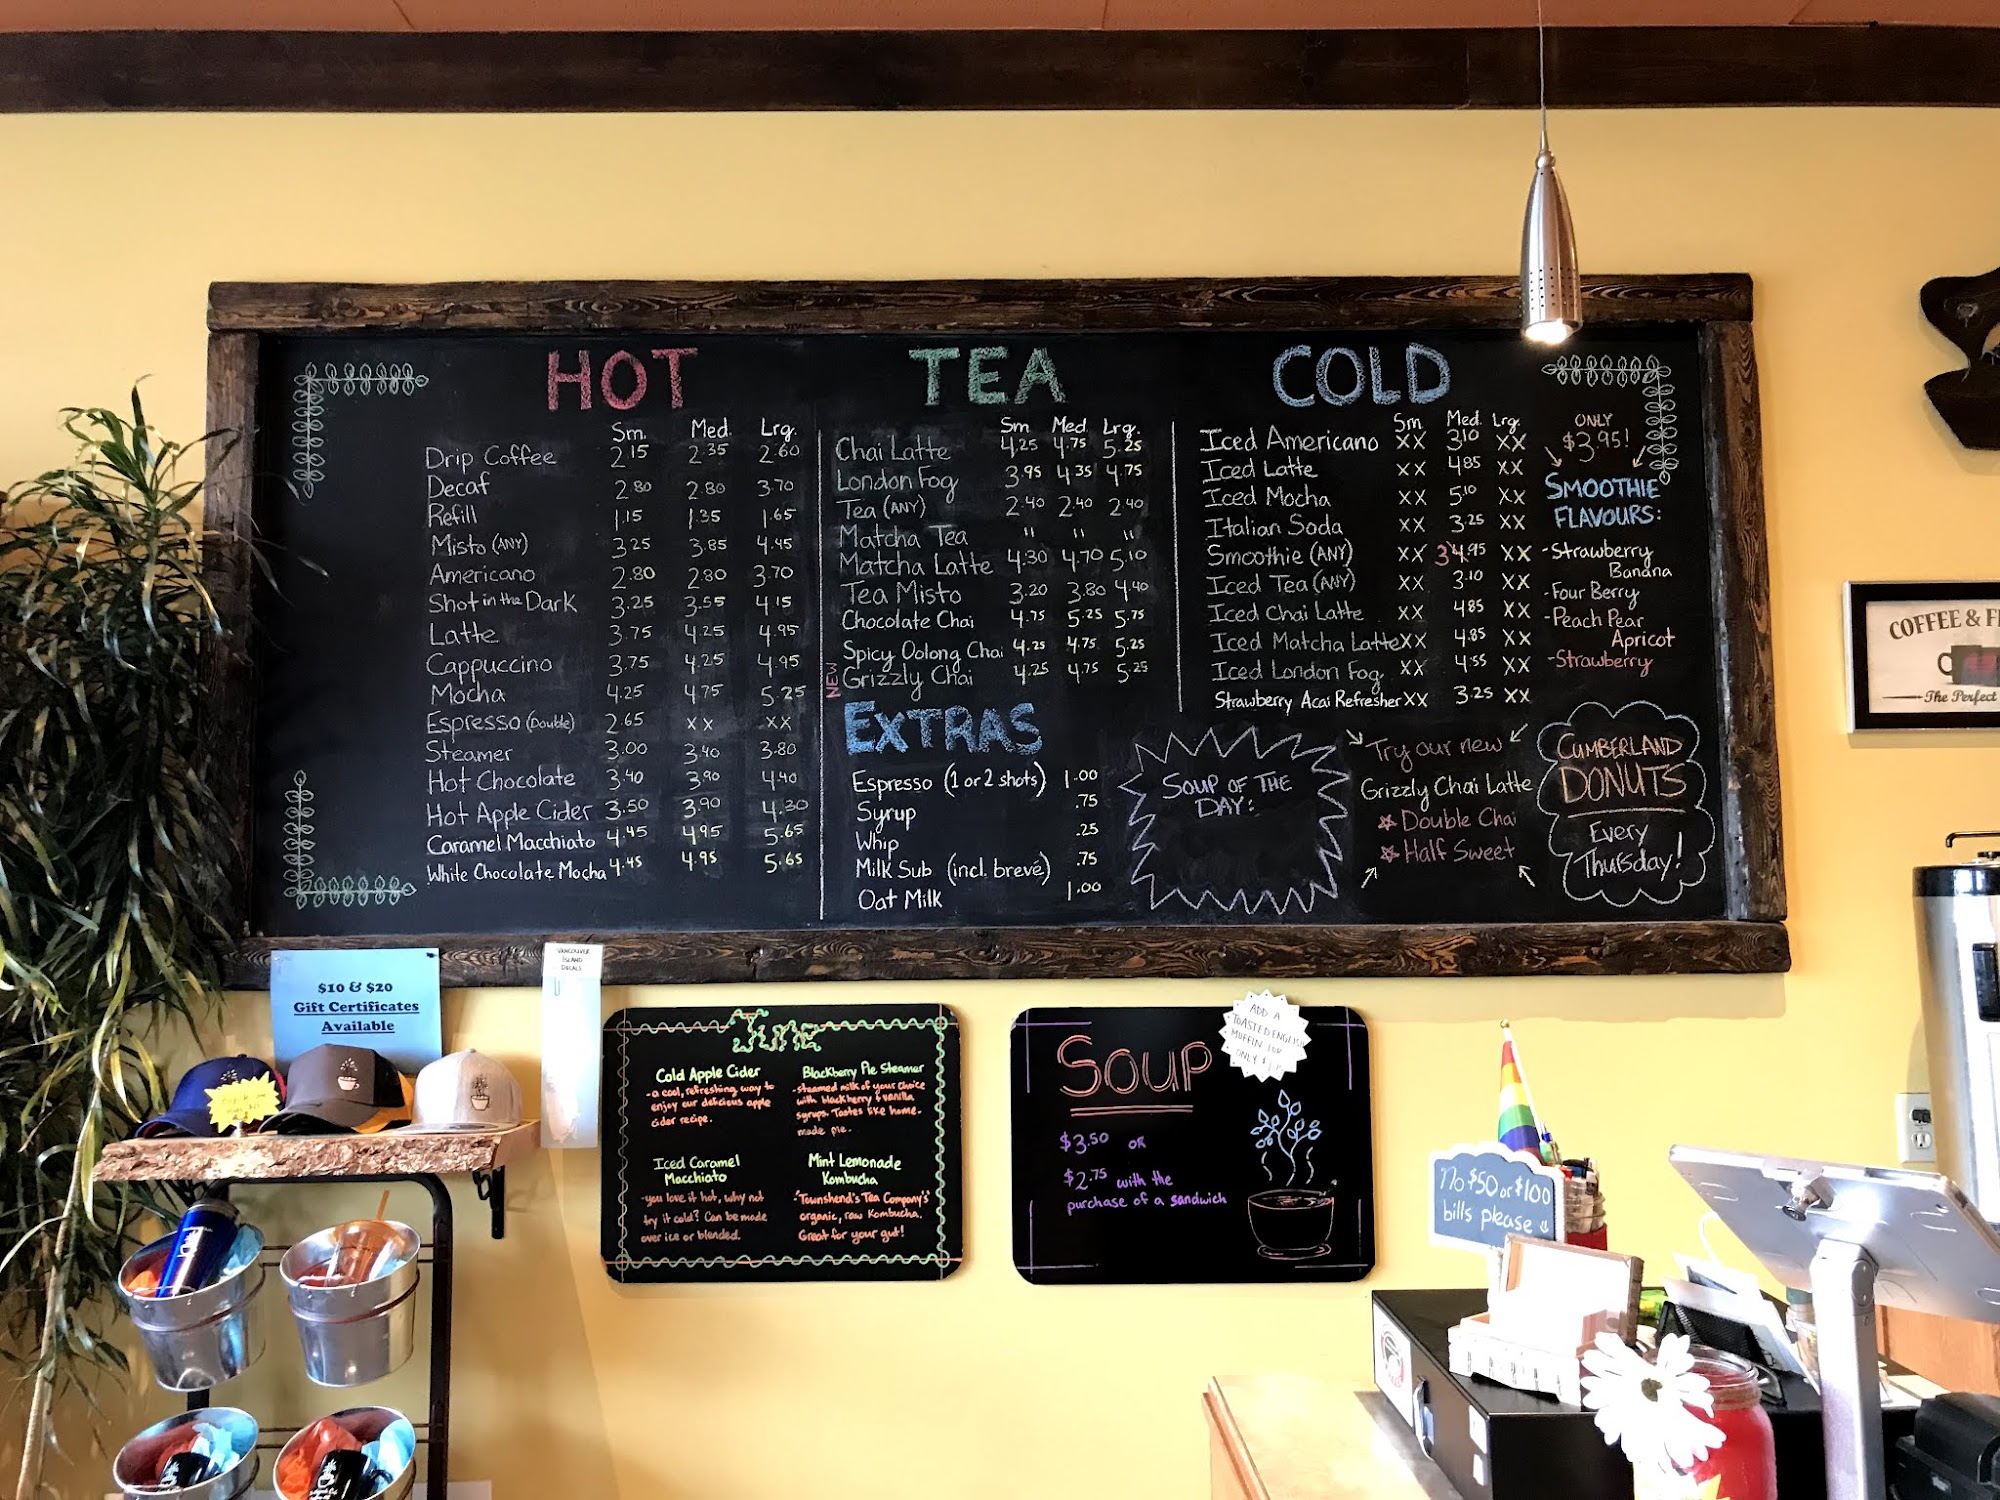 HOT
Sm. Med. Lrg.
Drip Coffee 2.15 2.35 2.60
Decaf 2.80 2.80 3.70
Refill 1.15 1.35 1.65
Misto (ANY) 3.25 3.85 4.45
Americano 2.80 2.80 3.70
Shot in the Dark 3.25 3.55 4.15
Latte 3.75 4.25 4.95
Cappuccino 3.75 4.25 4.95
Mocha 4.25 4.75 5.25
Espresso (Double) 2.65 xx xx
Steamer 3.00 3.40 3.80
Hot Chocolate 3.40 3.90 4.40
Hot Apple Cider 3.50 3.90 4.30
Caramel Macchiato 4.45 4.95 5.65
White Chocolate Mocha 4.45 4.95 5.65
TEA
Sm Med Lrg.
Chai Latte 4.25 4.75 5.25
London Fog 3.95 4.35 4.75
Tea (ANY) 2.40 2.40 2.40
Matcha Tea " " "
Matcha Latte 4.30 4.70 5.10
Tea Misto 3.20 3.80 4.40
Chocolate Chai 4.75 5.25 5.75
Spicy Oolong Chai 4.25 4.75 5.25
NEW Grizzly Chai 4.25 4.75 5.25
EXTRAS
Espresso (1 or 2 shots) 1.00
Syrup .75
Whip .25
Milk Sub (incl. brevé) .75
Oat Milk 1.00
COLD
Sm Med. Lrg.
Iced Americano xx 3.10 xx
Iced Latte xx 4.85 xx
Iced Mocha xx 5.10 xx
Italian Soda xx 3.25 xx
Smoothie (ANY) xx 3 4.95 xx
Iced Tea (ANY) xx 3.10 xx
Iced Chai Latte xx 4.85 xx
Iced Matcha Latte xx 4.85 xx
Iced London Fog xx 4.55 xx
Strawberry Acai Refresher xx 3.25 xx
ONLY
$3.95!
SMOOTHIE
FLAVOURS:
-Strawberry
Banana
-Four Berry
-Peach Pear
Apricot
-Strawberry
SOUP OF THE
DAY:
Try our new
Grizzly Chai Latte
Double Chai
Half Sweet
CUMBERLAND
DONUTS
Every
Thursday!
COFFEE & F
The Perfect
$10 & $20
Gift Certificates
Available
VANCOUVER
ISLAND
DECALS
June
Cold Apple Cider
-a cool, refreshing way to
enjoy our delicious apple
cider recipe.
Blackberry Pie Steamer
-steamed milk of your choice
with blackberry & vanilla
syrups. Tastes like home-
made pie.
Iced Caramel
Macchiato
-you love it hot, why not
try it cold? Can be made
over ice or blended.
Mint Lemonade
Kombucha
-Townshend's Tea Company's
organic, raw Kombucha.
Great for your gut!
SOUP
$3.50 OR
$2.75 with the
purchase of a sandwich
ADD A
TOASTED ENGLISH
MUFFIN FOR
ONLY
No $50 or $100
bills please